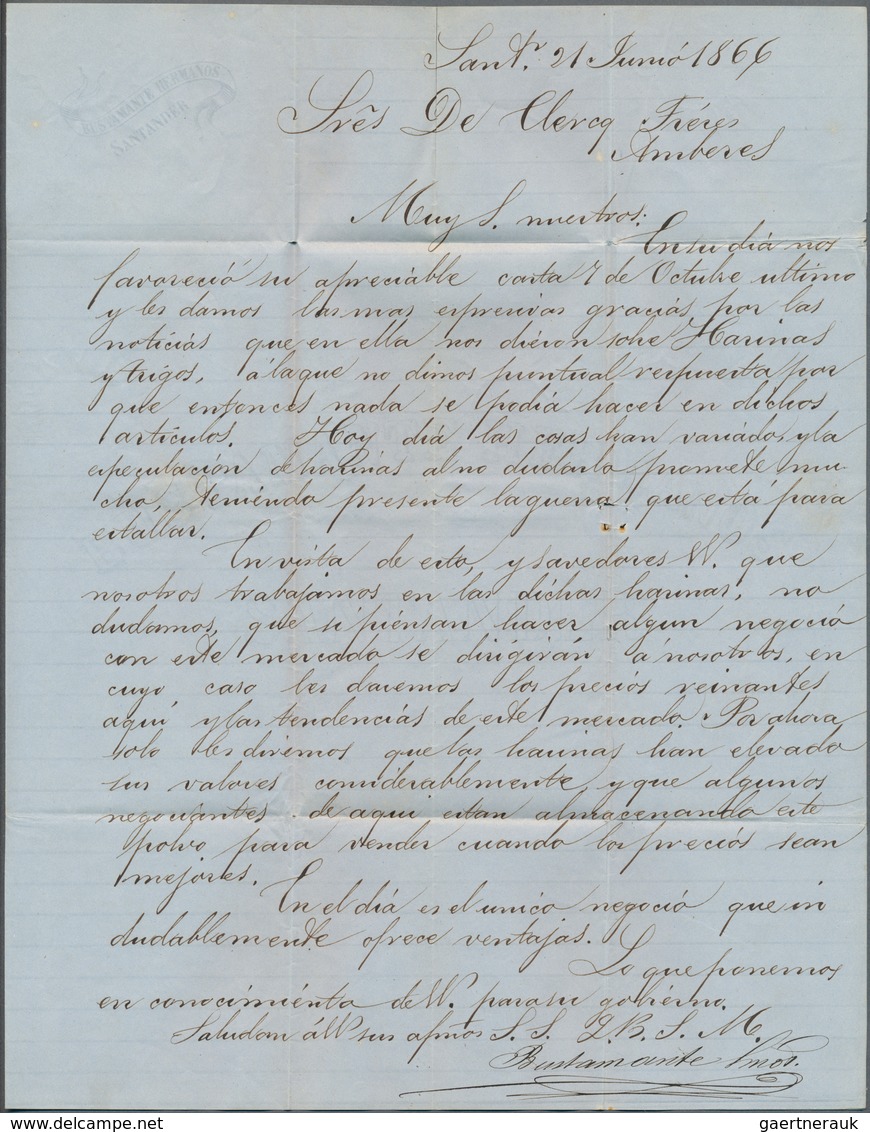 BUSTAMANTE HERMANOS
SANTANDER
Santr. 21 Junió 1866
Srẽs De Clercq Fréres
Amberes
Muy S. nuestros:
En su diá nos
favoreció su apreciáble carta 7 de Octubre ultimo
y les damos las mas espresivas graciás por las
noticiás que en ella nos diéron sobre Harinas
y trigos, á la que no dimos puntual respuesta por
que entonces nada se podiá hacer en dichos
articulos. Hoy diá las cosas han variado, y la
especulación de harinás al no dudarlo promete mu-
cho, teniéndo presente la guerra que está para
estallar.
En vista de esto, y savedores VV. que
nosotros trabajamos en las dichas harinas, no
dudamos, que si piénsan hacer algun negoció
con este mercado se dirigirán á nosotros, en
cuyo caso les daremos los preciós reinantes
aquí y las tendenciás de este mercado. Por ahora
solo les diremos que las harinas han elevado
sus valores considerablemente y que algunos
negociantes de aqui estan almacenando este
polvo para vender cuando los preciós sean
mejores.
En el diá es el unico negoció que in
dudablemente ofrece ventajas.
Lo que ponemos
en conocimiénto de VV. para su gobiérno.
Saludan á VV sus afmos S. S. Q. B. S. M.
Bustamante Hnos.
gaertnerauk